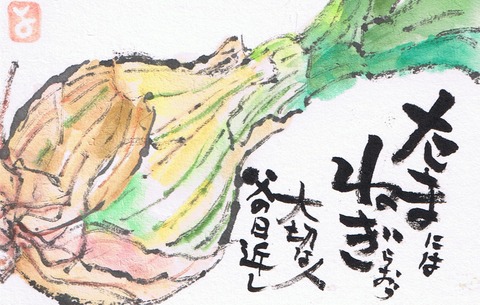 たまには
ねぎらおう
大切な人
父の日近し